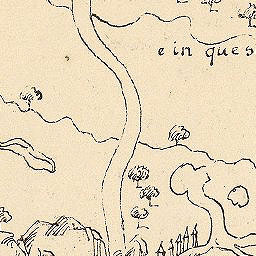 e in ques